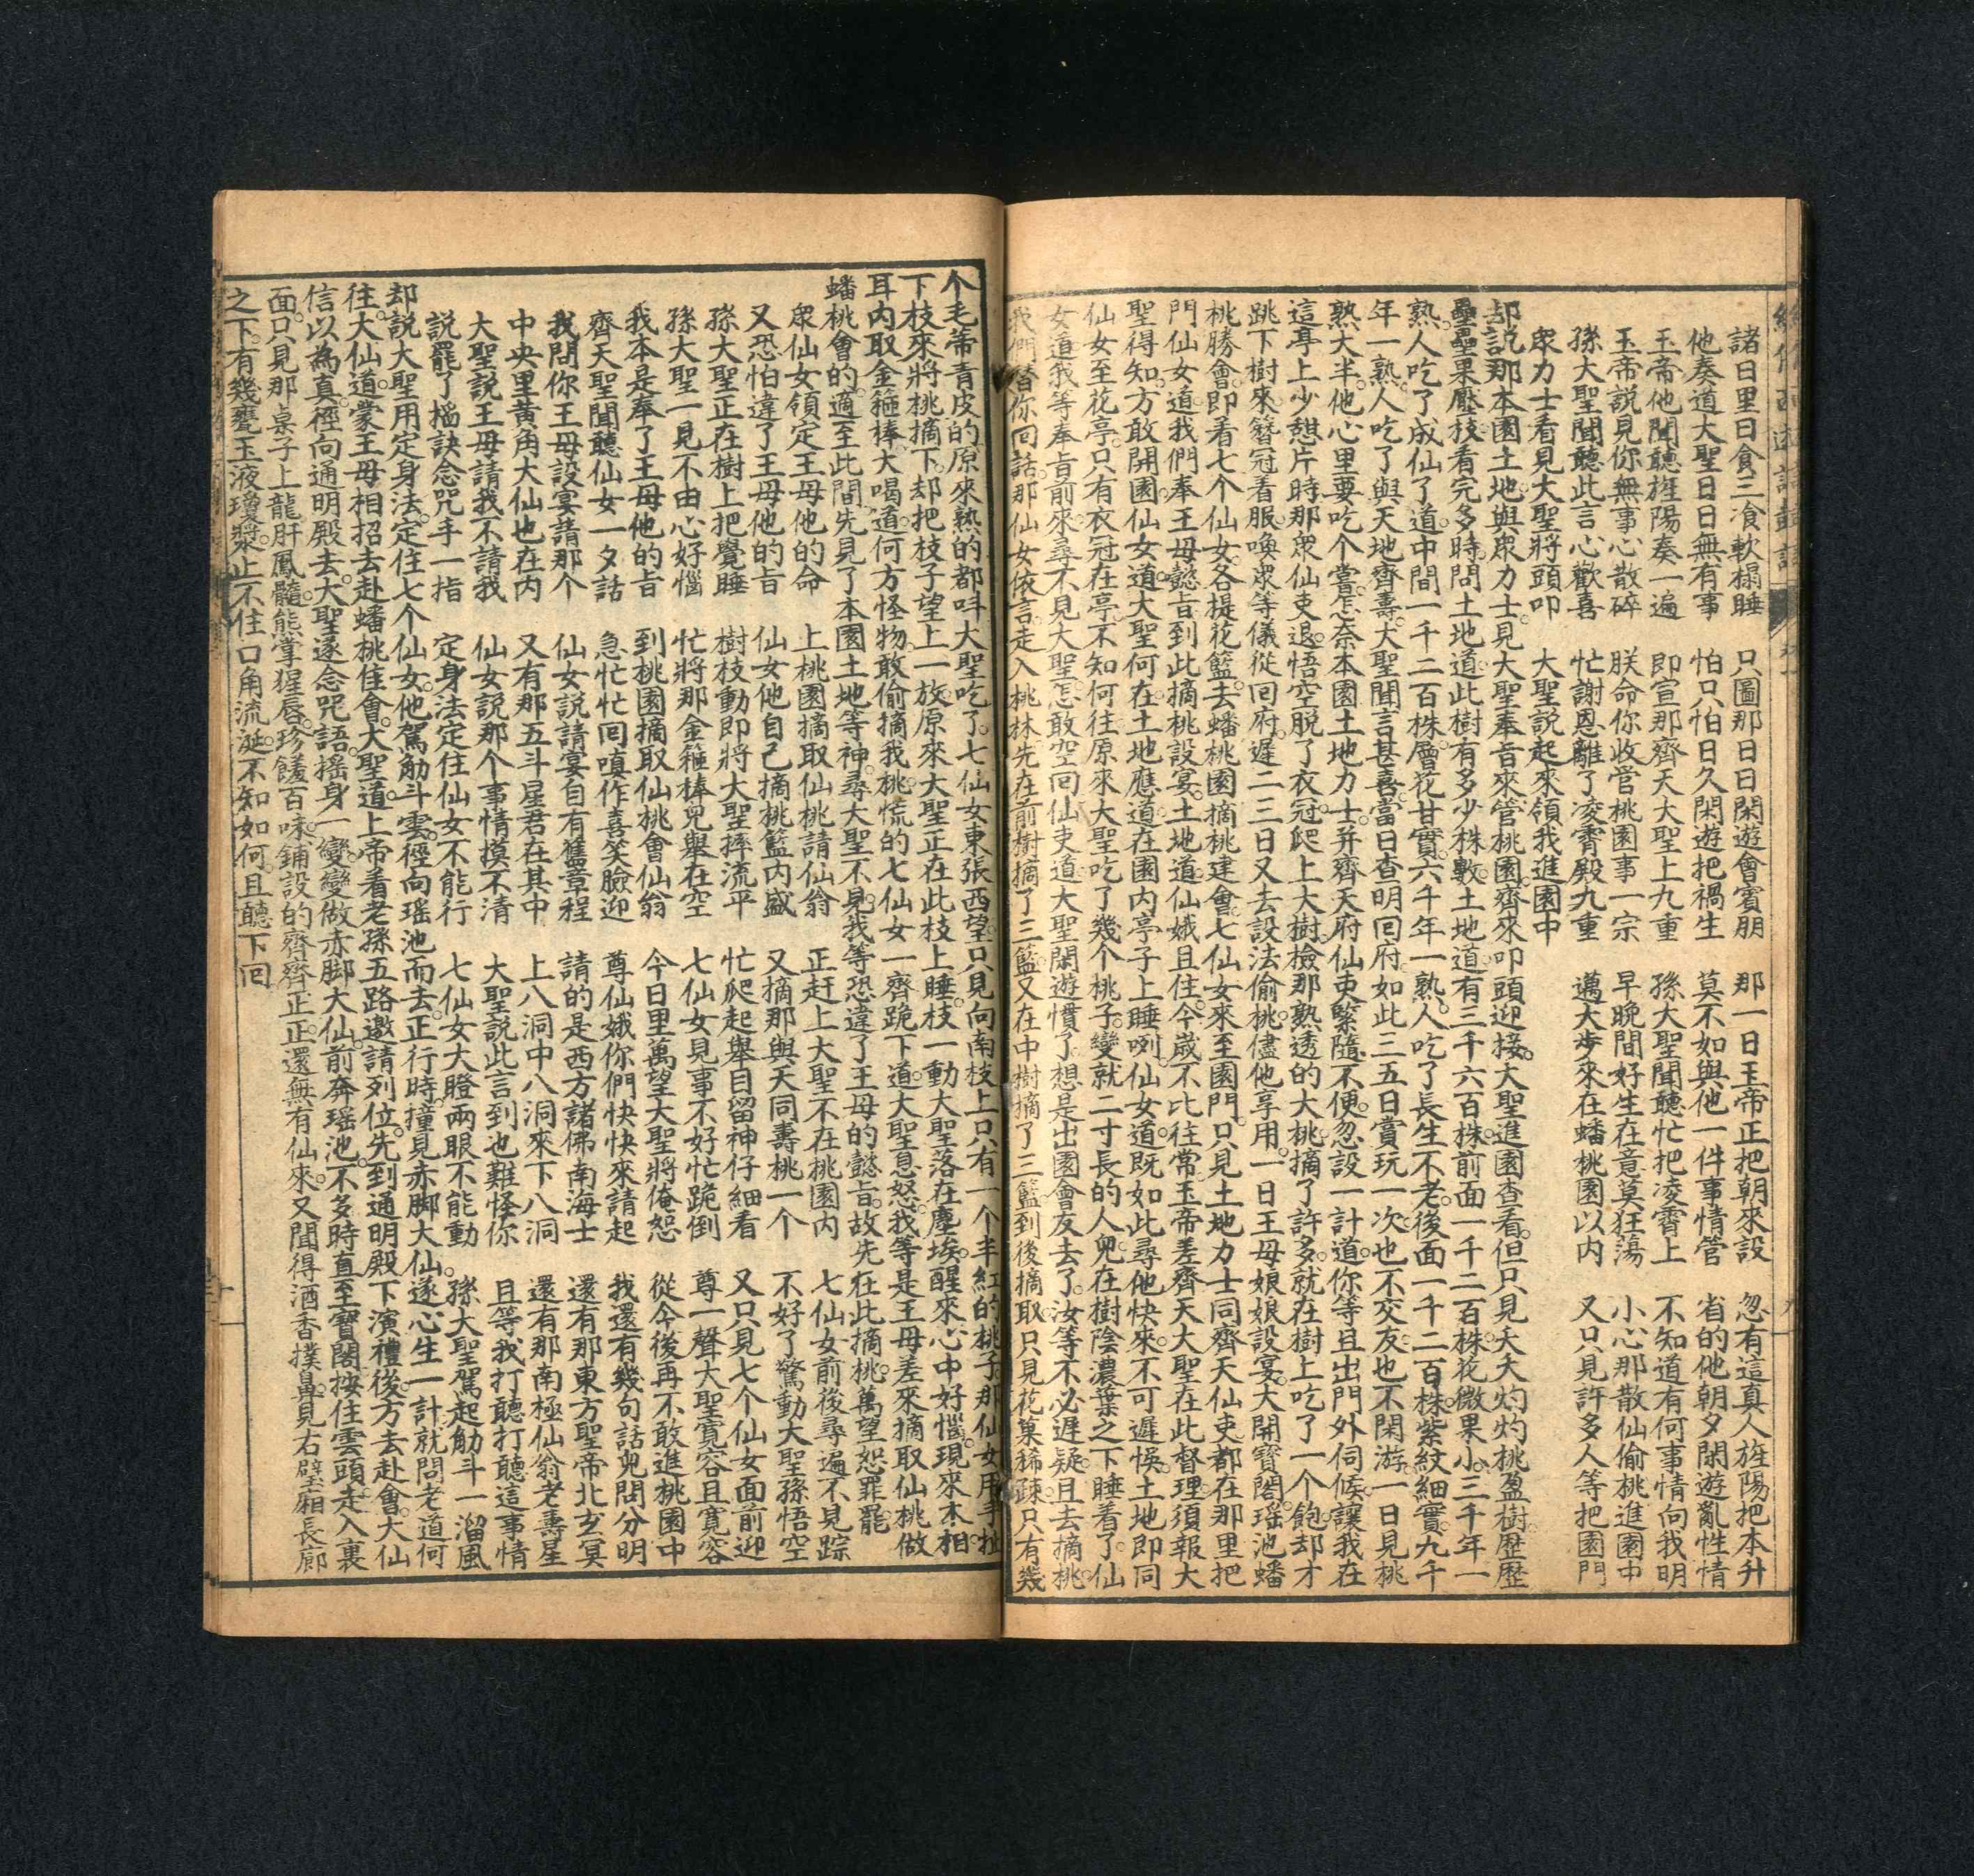 繪像西遊記鼓詞
諸日里日食三飡軟榻睡　只圖那日日閑遊會賓朋　那一日王帝正把朝來設　忽有這真人旌陽把本升
他奏道大聖日日無有事　怕只怕日久閑遊把禍生　莫不如與他一件事情管　省的他朝夕閑遊亂性情
玉帝他聞聽旌陽奏一遍　即宣那齊天大聖上九重　孫大聖聞聽忙把凌霄上　不知道有何事情向我明
玉帝說見你無事心散碎　朕命你收管桃園事一宗　早晚間好生在意莫狂蕩　小心那散仙偷桃進園中
孫大聖聞聽此言心歡喜　忙謝恩離了凌霄殿九重　邁大步來在蟠桃園以内　又只見許多人等把園門
衆力士看見大聖將頭叩　大聖說起來領我進園中
却説那本園土地與眾力士見大聖奉旨來管桃園齊來叩頭迎接。大聖進園查看。但只見夭夭灼灼桃盈樹歷歷
壘壘果壓枝看完多時問土地道此樹有多少株數土地道有三千六百株前面一千二百株花微果小三千年一
熟。人吃了成仙了道中間一千二百株層花甘實六千年一熟。人吃了長生不老後面一千二百株紫紋細實九千
年一熟。人吃了與天地齊壽大聖聞言甚喜當日查明回府如此三五日賞玩一次也不交友也不閑游一日見桃
熟大半。他心里要吃个嘗怎奈本園土地力士并齊天府仙吏緊隨不便忽設一計道你等且出門外伺候讓我在
這亭上少憇片時那衆仙吏退悟空脱了衣冠爬上大樹檢那熟透的大桃摘了許多就在樹上吃了一个飽却才
跳下樹來簪冠看服喚衆等儀從回府遲二三日又去設法偷桃儘他享用。一日王母娘娘設宴大開寶閣瑶池蟠
桃勝會即看七个仙女各提花籃去蟠桃園摘桃建會七仙女來至園門只見土地力士同齊天仙吏都在那里把
門仙女道我們奉王母懿旨到此摘桃設宴土地道仙娥且住今歲不比往常玉帝差齊天大聖在此督理須報大
聖得知。方敢開園仙女道大聖何在土地應道在園内亭子上睡咧仙女道既如此尋他快來不可遲悞土地即同
仙女至花亭只有衣冠在亭不知何往原來大聖吃了幾个桃子變就二寸長的人兒在樹陰濃葉之下睡着了仙
女道我等奉旨前來尋不見大聖怎敢空回仙吏道大聖閑遊慣了想是出園會友去了汝等不必遲疑且去摘桃
我們替你回話那仙女依言走入桃林先在前樹摘了三籃又在中樹摘了三籃到後摘取只見花菓稀疎只有幾
个毛蒂青皮的原來熟的都呌大聖吃了。七仙女東張西望只見向南枝上只有一个半紅的桃子那仙女用手扯
下枝來將桃摘下却把枝子望上一放原來大聖正在此枝上睡枝一動大聖落在塵埃醒來心中好惱現來本相
耳内取金箍棒大喝道何方怪物敢偷摘我桃慌的七仙女一齊跪下道大聖息怒我等是王母差來摘取仙桃做
蟠桃會的適至此間先見了本園土地等神。尋大聖不見我等恐違了王母的懿旨故先在此摘桃萬望恕罪罷
衆仙女領定王母他的命　上桃園摘取仙桃請仙翁　正赶上大聖不在桃園内　七仙女前後尋遍不見踪
又恐怕違了王母他的旨　仙女他自己摘桃籃内盛　又摘那與天同壽桃一个　不好了驚動大聖孫悟空
孫大聖正在樹上把覺睡　樹枝動即將大聖摔流平　忙爬起舉目留神仔細看　又只見七个仙女面前迎
孫大聖一見不由心好惱　忙將那金箍棒兒舉在空　七仙女見事不好忙跪倒　尊一聲大聖寬容且寬容
我本是奉了王母他的旨　到桃園摘取仙桃會仙翁　今日里萬望大聖將俺恕　從今後再不敢進桃園中
齊天聖聞聽仙女一夕話　急忙忙回嗔作喜笑臉迎　尊仙娥你們快快來請起　我還有幾句話兒問分明
我問你王母設宴請那个　仙女説請宴自有舊章程　請的是西方諸佛南海士　還有那東方聖帝北玄冥
中央里黄角大仙也在内　又有那五斗星君在其中　上八洞中八洞來下八洞　還有那南極仙翁老壽星
大聖説王母請我不請我　仙女説那个事情摸不清　大聖説此言到也難怪你　且等我打聽打聽這事情
說罷了搯訣念咒手一指　定身法定住仙女不能行　七仙女大瞪兩眼不能動　孫大聖駕起觔斗一溜風
却説大聖用定身法。定住七个仙女。他駕觔斗雲。徑向瑶池而去。正行時。撞見赤脚大仙。遂心生一計就問老道何
往。大仙道。蒙王母相招去赴蟠桃佳會。大聖道上帝看老孫五路邀請列位。先到通明殿下演禮後方去赴會。大仙
信以為真。徑向通明殿去。大聖遂念咒語。摇身一變變做赤脚大仙。前奔瑶池。不多時直至寶閣。按住雲頭走入裏
面。只見那桌子上龍肝鳳髓熊掌猩唇。珍饈百味。鋪設的齊齊正正。還無有仙來。又聞得酒香撲鼻。見右壁廂長廊
之下。有幾甕玉液瓊漿止不住口角流涎。不知如何。且聽下回